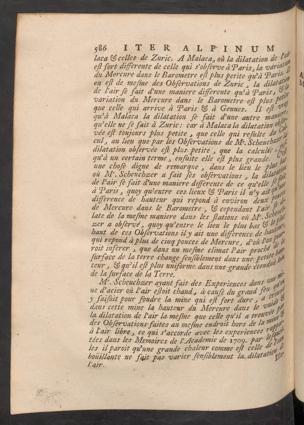 586 ITER ALPINUM
laca & celles de Zuric. A Malaca, où la dilatation de l'air
est fort differente de celle qui s'observe à Paris, la variation
du Mercure dans le Barometre est plus petite qu'à Paris. Il
en est de mesme des Observations de Zuric, la dilatation
de l'air se fait d'une maniere differente qu'à Paris, & la
variation du Mercure dans le Barometre est plus petite
que celle qui arrive à Paris & à Gennes. Il est vray
qu'à Malaca la dilatation se fait d'une autre maniere
qu'elle ne se fait à Zuric: car à Malaca la dilatation
vée est toujours plus petite, que celle qui resulte du cal-
cul, au lieu que par les Observations de Mr. Scheuchzer la
dilatation observée est plus petite, que la calculée
qu'à un certain terme, ensuite elle est plus grande.
une chose digne de remarque, dans le lieu le plus
où Mr. Scheuchzer a fait ses observations, la dilatation
de l'air se fait d'une maniere differente de ce qu'elle
à Paris, quoy qu'entre ces lieux & Paris il n'y ait
difference de hauteur qui repond à environ deux pouces
de Mercure dans le Barometre, & cependant l'air
late de la mesme maniere dans les stations où Mr. Scheuch-
zer a observé, quoy qu'entre le lieu le plus bas & le plus
haut de ces Observations il y ait une difference de hauteur
qui repond à plus de cinq pouces de Mercure, d'où l'on pour-
roit inferer, que dans un mesme climat l'air proche
surface de la terre change sensiblement dans une petite
ce, & qu'il est plus uniforme dans une grande étenduë
de la surface de la Terre.
Mr. Scheuchzer ayant fait des Experiences dans une
ne d'acier où l'air estoit chaud, à cause du grand feu qu'on
y faisoit pour fondre la mine qui est fort dure, a trouvé
dans cette mine à hauteur du Mercure dans le
la dilatation de l'air la mesme que celle qu'il a trouvée
des Observations faites au mesme endroit hors de la mine
à l'air libre, ce qui s'accorde avec les experiences rappor-
tées dans les Memoires de l'Academie de 1709. par
les il paroit qu'une grande chaleur comme est celle de l'eau
boüillante ne fait pas varier sensiblement la dilatation de
l'air.